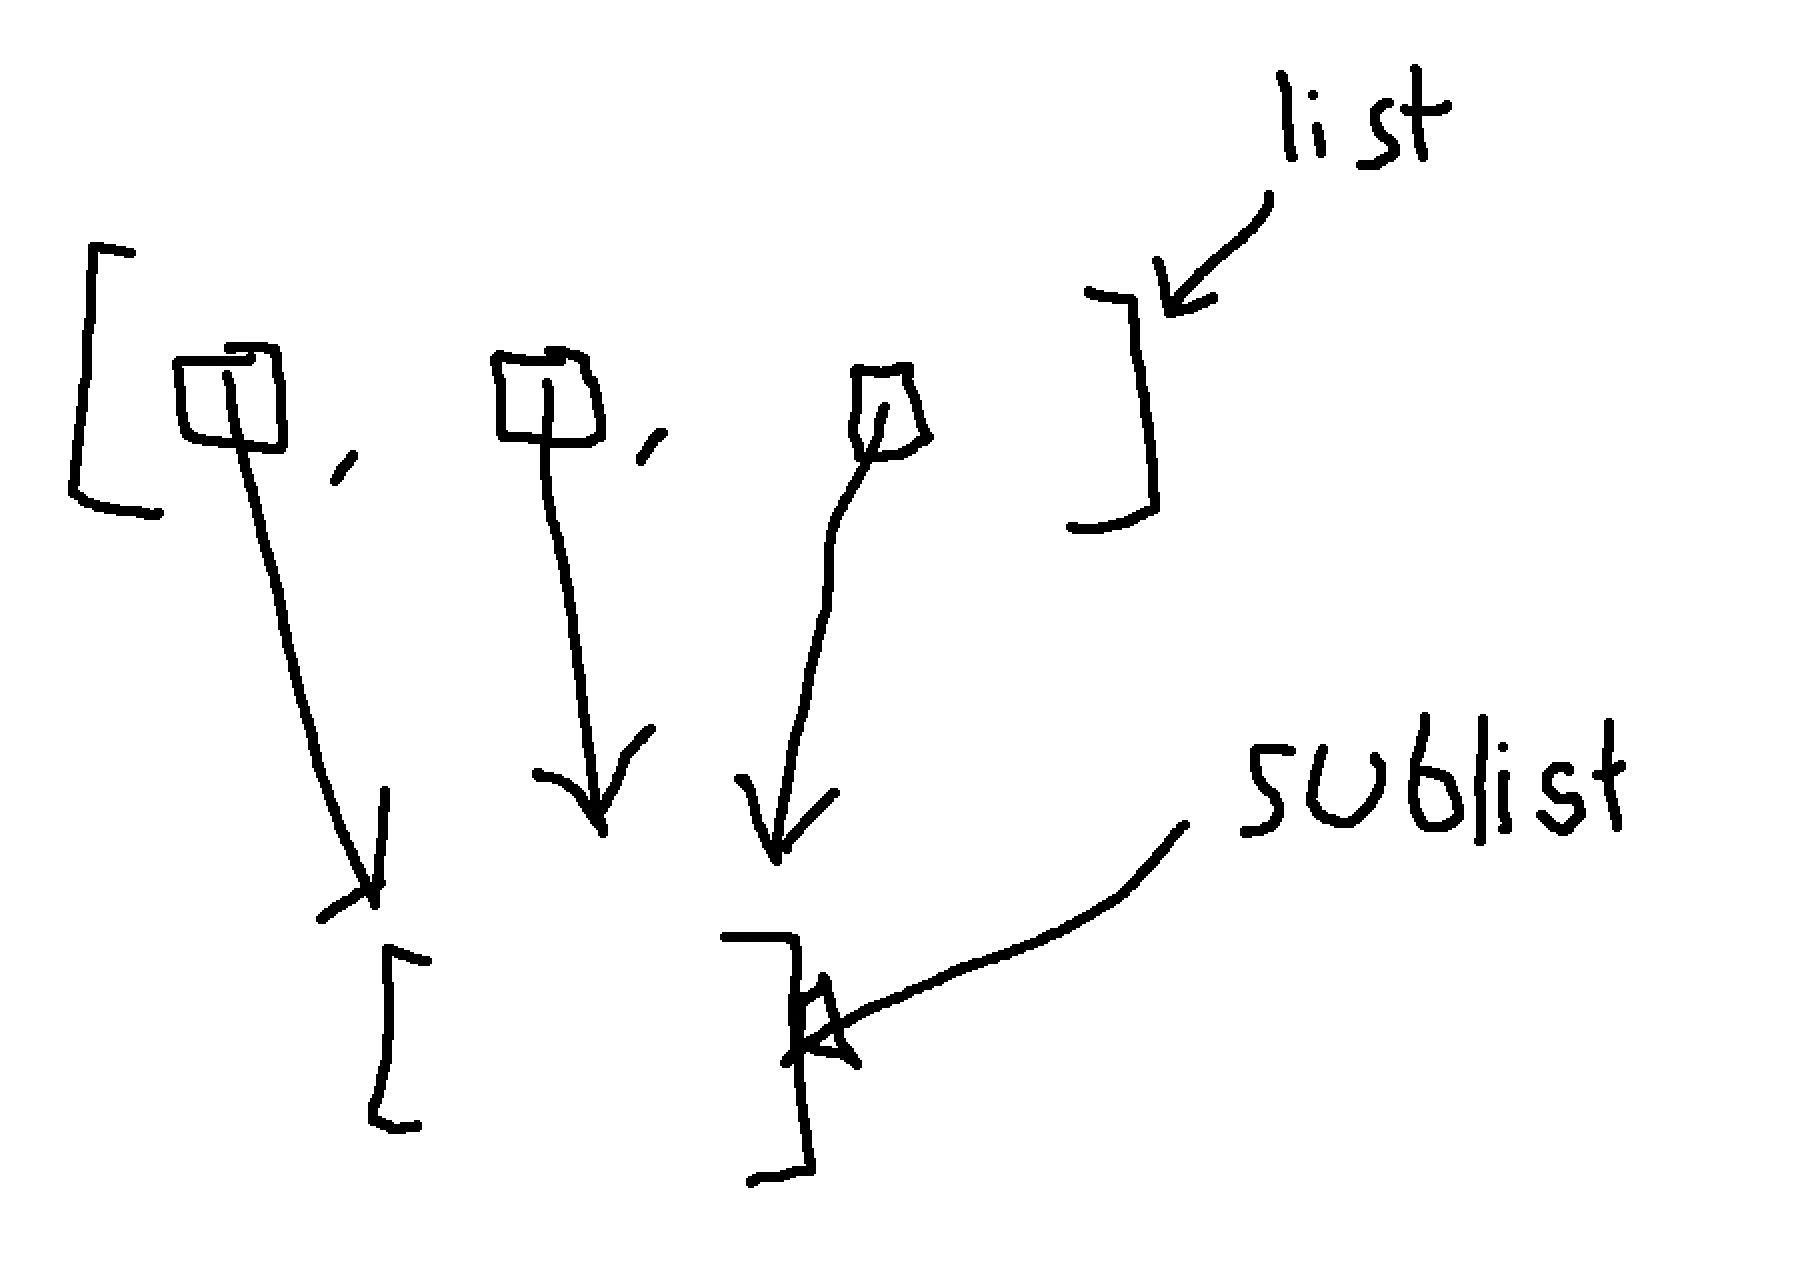 list
[ , , ]
sublist
[ ]